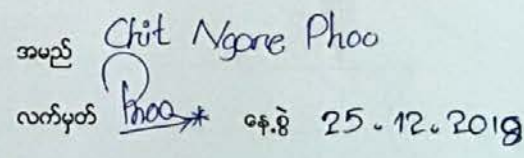 အမည် Chit Ngone Phoo
လက်မှတ် Phoo နေ့စွဲ 25.12.2018